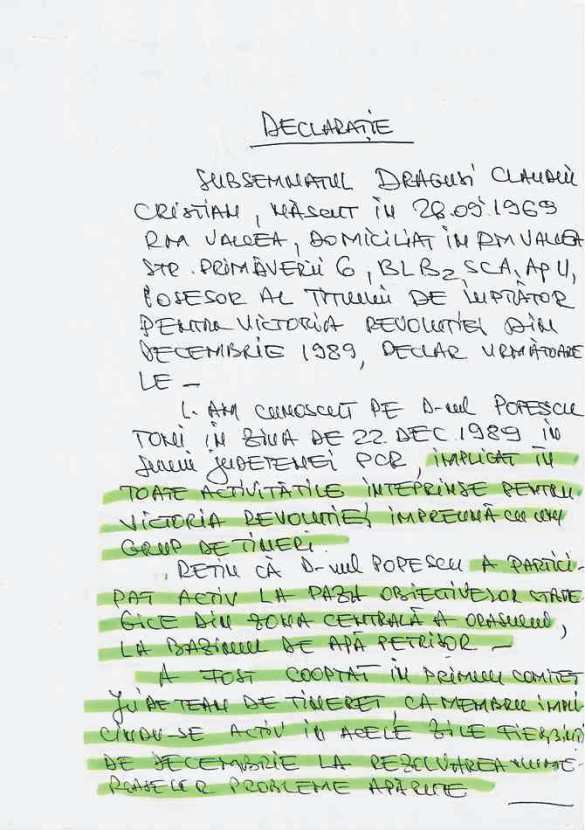 DECLARAȚIE
SUBSEMNATUL DRAGUSI CLAUDIU
CRISTIAN, NĂSCUT ÎN 28.09.1969
RM VALCEA, DOMICILIAT IN RM VALCEA
STR. PRIMĂVERII 6, BL B2 SCA, Ap 11,
POSESOR AL TITLULUI DE LUPTĂTOR
PENTRU VICTORIA REVOLUTIEI DIN
DECEMBRIE 1989, DECLAR URMĂTOARE
LE –
1. AM CUNOSCUT PE D-nul POPESCU
TONI IN ZIUA DE 22.DEC.1989 IN
JUDETENEI PCR, IMPLICAT ÎN
TOATE ACTIVITĂTILE INTEPRINSE PENTRU
VICTORIA REVOLUTIEI, IMPREUNĂ CU UN
GRUP DE TINERI.
RETIN CĂ D-nul POPESCU A PARTICI-
PAT ACTIV LA PAZA OBIECTIVELOR STATE
GICE DIN ZONA CENTRALĂ A ORASULUI,
LA BAZINUL DE APĂ PETRISOR –
A FOST COOPTAT IN PRIMUL COMITET
JUDETEAN DE TINERET, CA MEMBRU IMPLI
CÎNDU-SE ACTIV IN ACELE ZILE FIERBINTI
DE DECEMBRIE LA REZOLVAREA NUME-
ROASELOR PROBLEME APĂRUTE